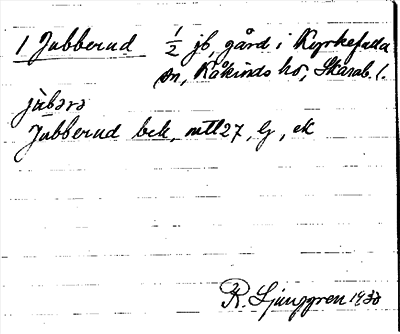 1 Jubberud ½ jb, gård i Kyrkefalla
sn, Kåkinds hd, Skarab. l.
jùbərə
Jubberud bek, mtl 27, G, ek
R. Ljunggren 1930